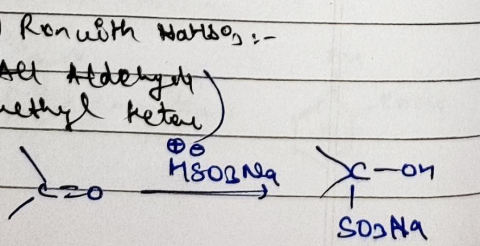 ) Rxn with NaHSO3 :-
All Aldehyde
methyl ketone
⊕ ⊖
C=O HSO3Na C-OH
SO3Na